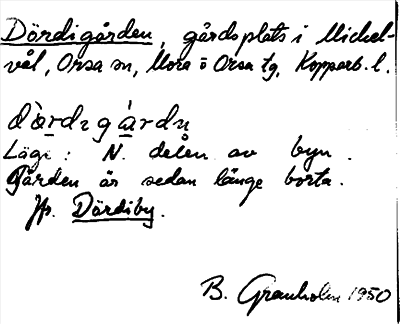 Dördigården, gårdsplats i Mickel-
vål, Orsa sn, Mora o Orsa tg, Kopparb. l.
dö̀rdɪgårdn̥
Läge: N. delen av byn.
Gården är sedan länge borta.
Jfr. Dördiby.
B. Granholm 1950